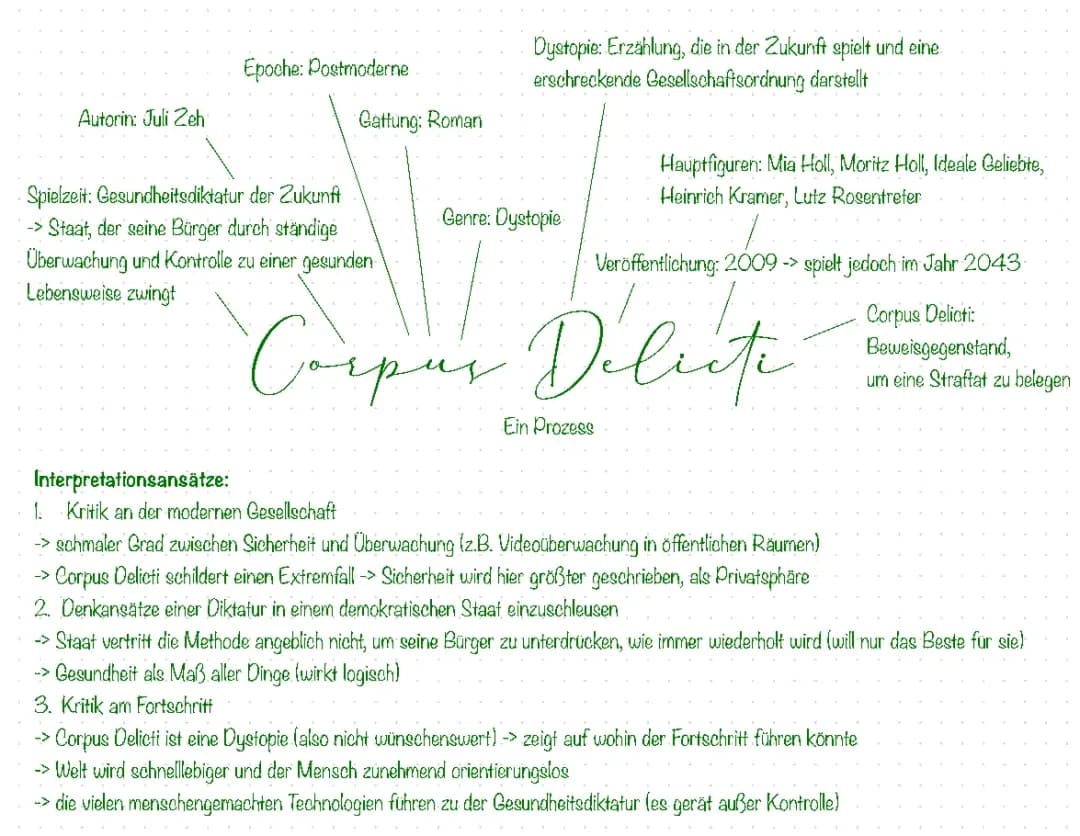 Dystopie: Erzählung, die in der Zukunft spielt und eine
erschreckende Gesellschaftsordnung darstellt
Epoche: Postmoderne
Autorin: Juli Zeh
Gattung: Roman
Hauptfiguren: Mia Holl, Moritz Holl, Ideale Geliebte,
Heinrich Kramer, Lutz Rosentreter
Spielzeit: Gesundheitsdiktatur der Zukunft
-> Staat, der seine Bürger durch ständige
Überwachung und Kontrolle zu einer gesunden
Lebensweise zwingt
Genre: Dystopie
Veröffentlichung: 2009 -> spielt jedoch im Jahr 2043
Corpus Delicti:
Beweisgegenstand,
um eine Straftat zu belegen
Corpus Delicti
Ein Prozess
Interpretationsansätze:
1. Kritik an der modernen Gesellschaft
-> schmaler Grad zwischen Sicherheit und Überwachung (z.B. Videoüberwachung in öffentlichen Räumen)
-> Corpus Delicti schildert einen Extremfall -> Sicherheit wird hier größter geschrieben, als Privatsphäre
2. Denkansätze einer Diktatur in einem demokratischen Staat einzuschleusen
-> Staat vertritt die Methode angeblich nicht, um seine Bürger zu unterdrücken, wie immer wiederholt wird (will nur das Beste für sie)
-> Gesundheit als Maß aller Dinge (wirkt logisch)
3. Kritik am Fortschritt
-> Corpus Delicti ist eine Dystopie (also nicht wünschenswert) -> zeigt auf wohin der Fortschritt führen könnte
-> Welt wird schnelllebiger und der Mensch zunehmend orientierungslos
-> die vielen menschengemachten Technologien führen zu der Gesundheitsdiktatur (es gerät außer Kontrolle)